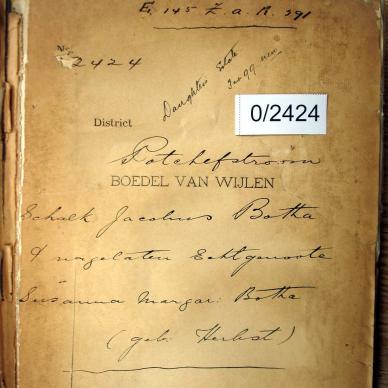 E. 145 Z. a. R. 391
No. 2424
Daughter
0/2424
District
Potchefstroom
BOEDEL VAN WIJLEN
Schalk Jacobus Botha
& nagelaten Echtgenoote
Susanna Margar: Botha
(geb: Herbst)